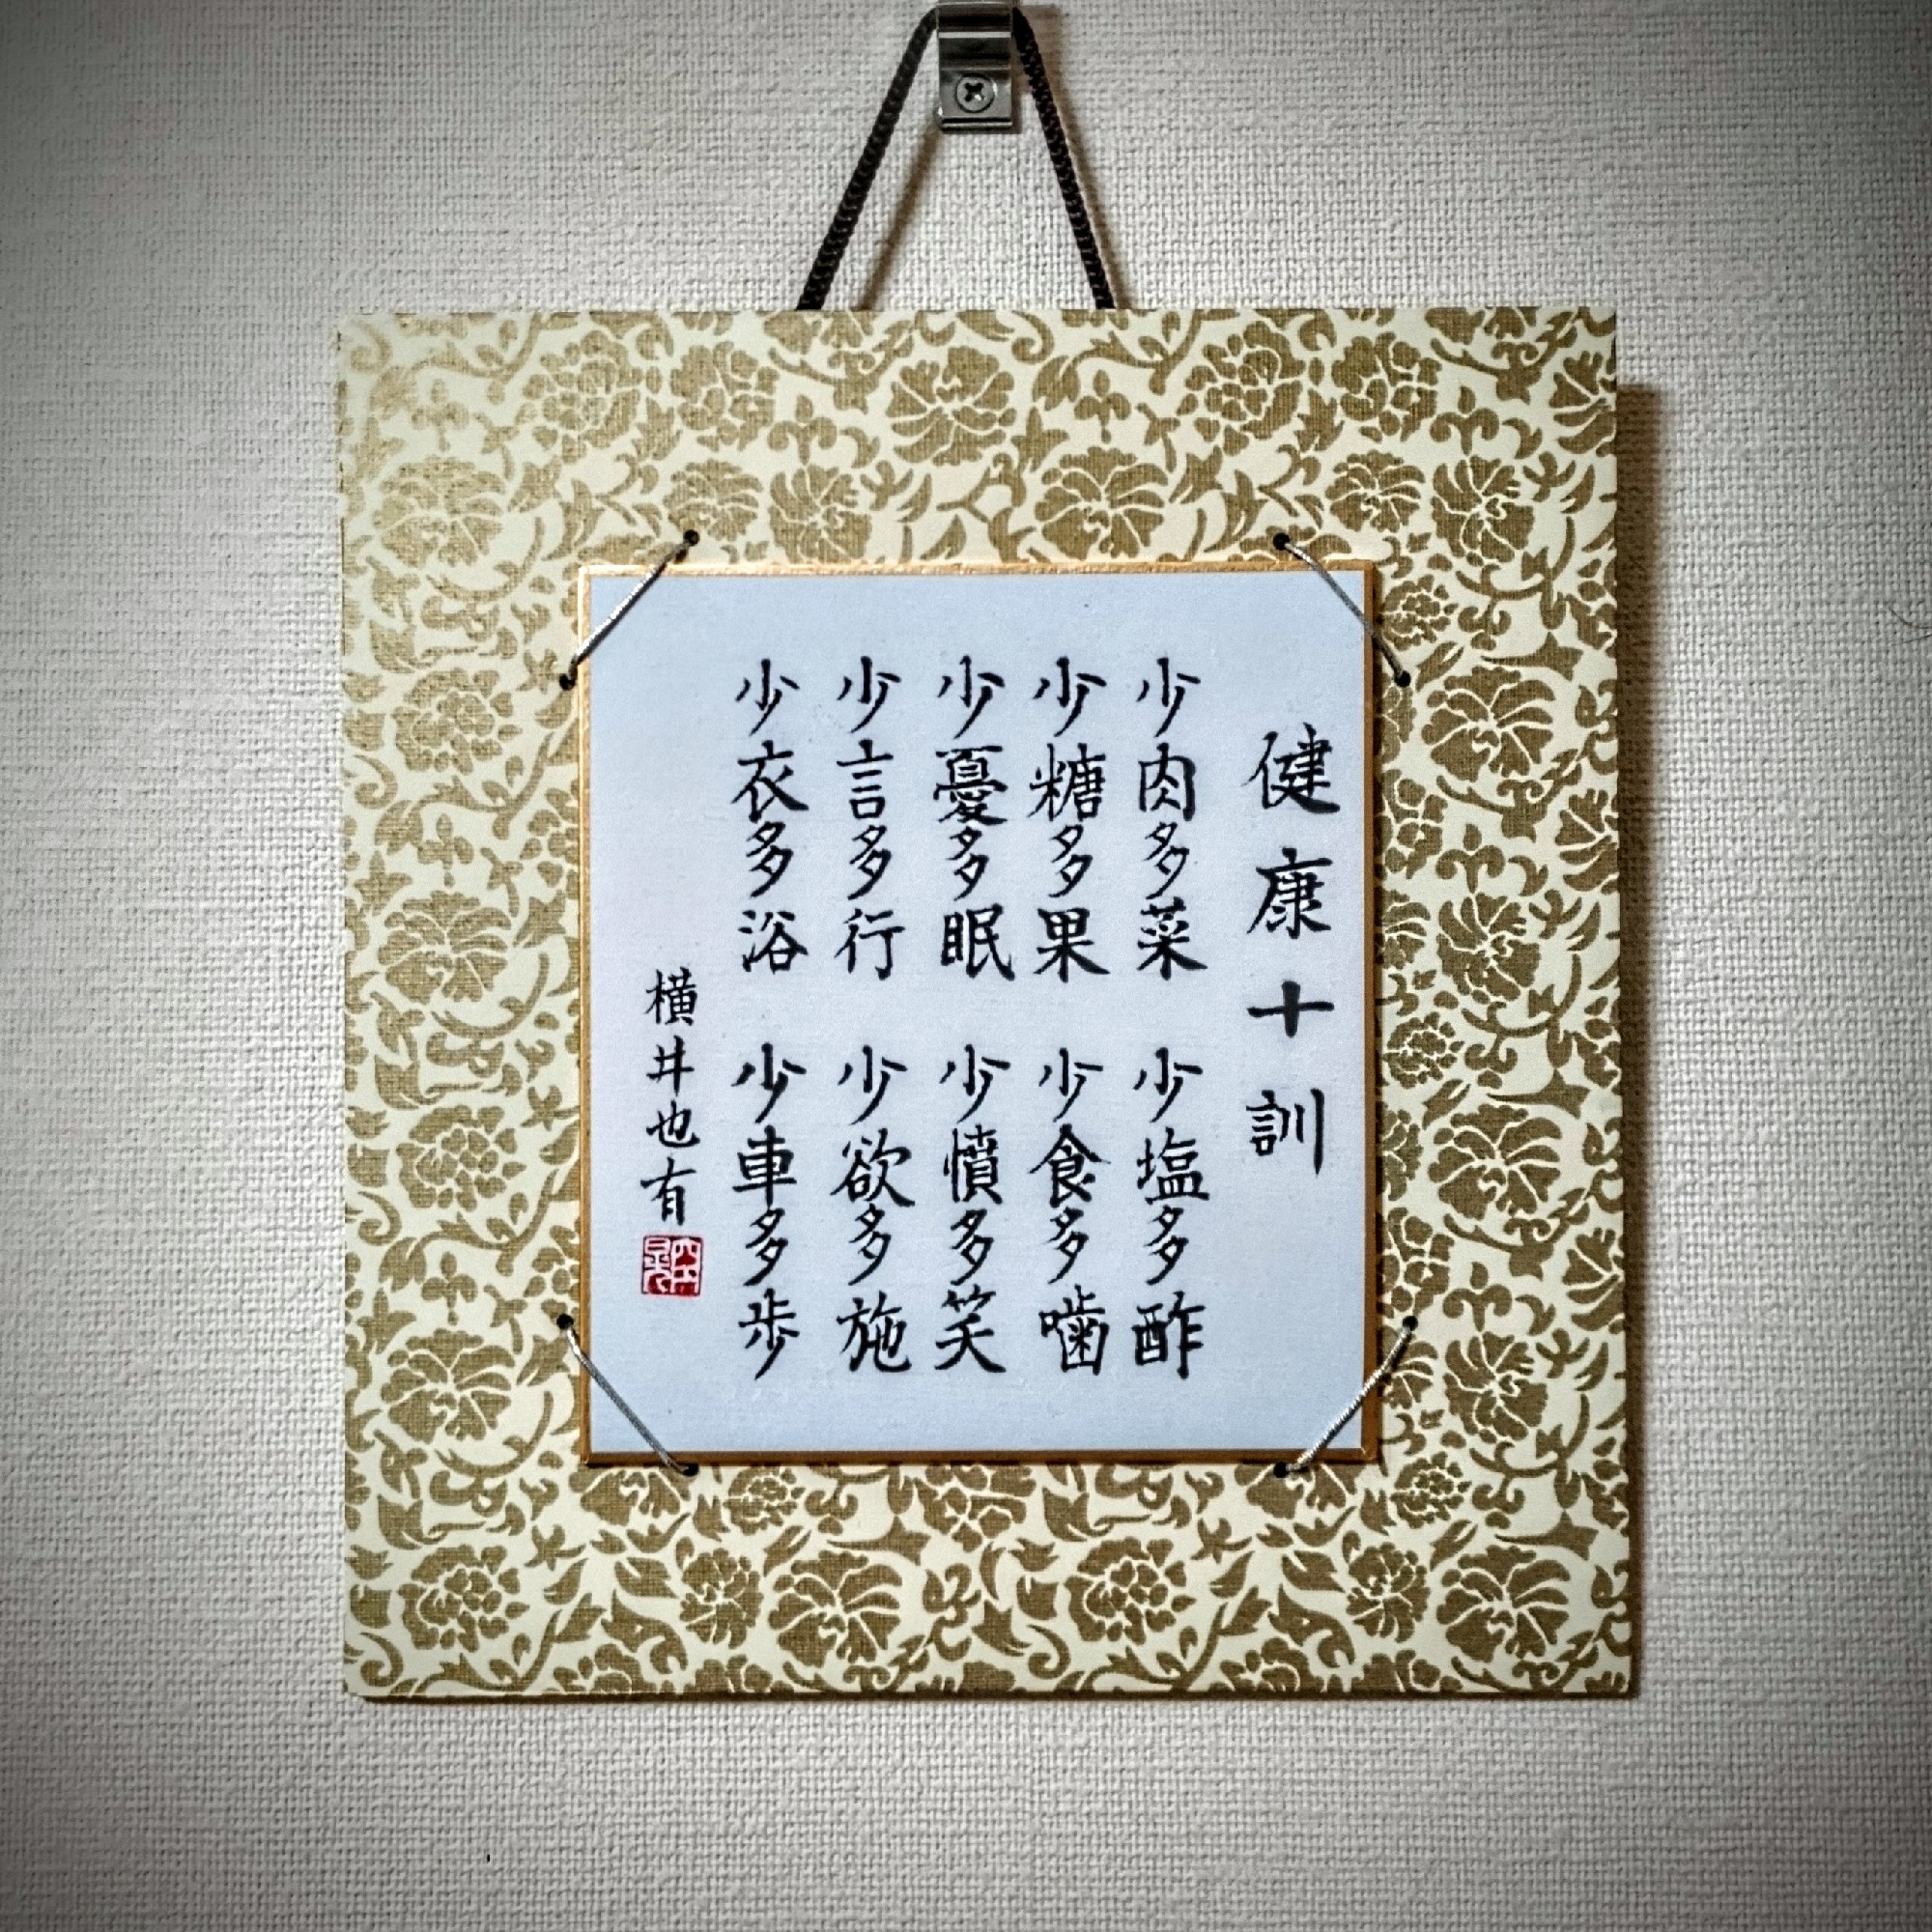 健康十訓
少肉多菜 少塩多酢
少糖多果 少食多噛
少憂多眠 少憤多笑
少言多行 少欲多施
少衣多浴 少車多歩
横井也有